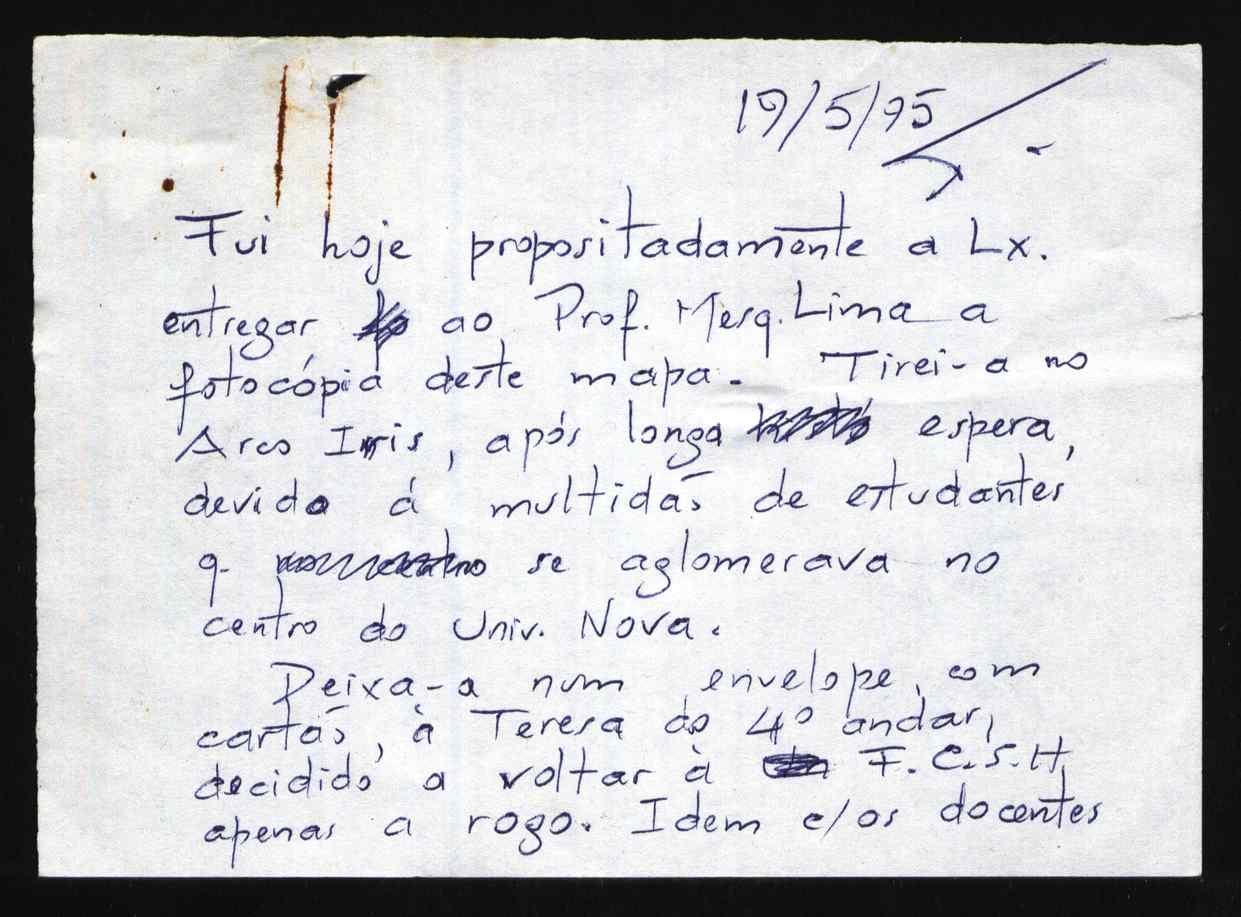 19/5/95
Fui hoje propositadamente a Lx.
entregar ao Prof. Mesq. Lima a
fotocópia deste mapa. Tirei-a no
Arco Iris, após longa espera,
devido á multidão de estudantes
q. se aglomerava no
centro do Univ. Nova.
Deixa-a num envelope, com
cartão, à Teresa do 4º andar,
decidido a voltar à F.C.S.H,
apenas a rogo. Idem c/os docentes